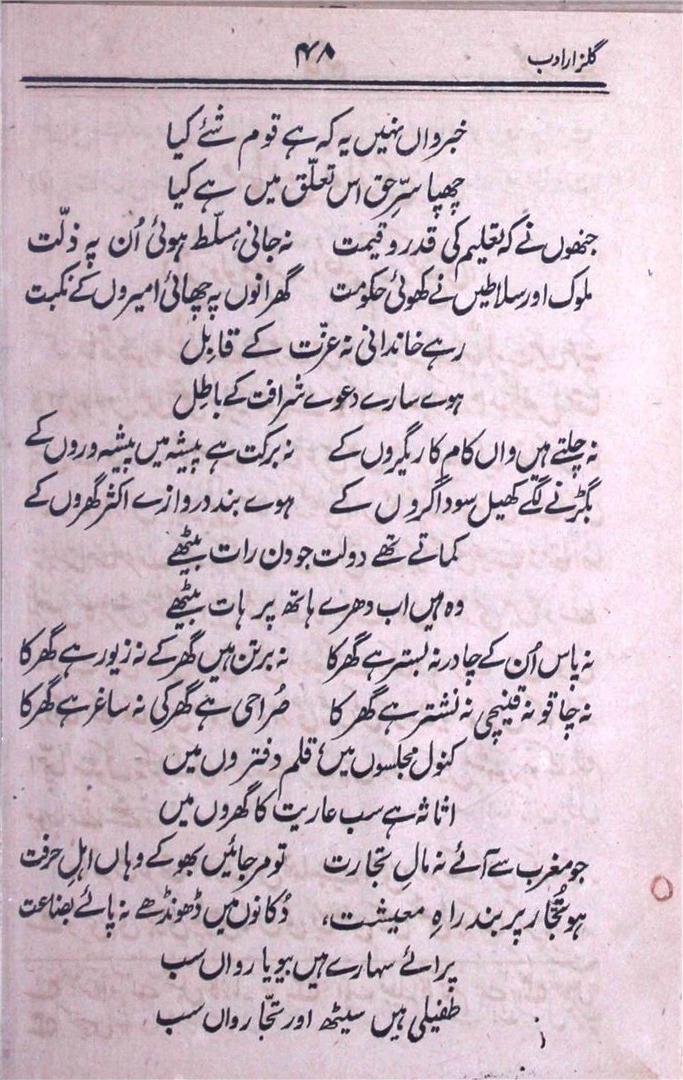 گلزار ادب ۴۸
خبر واں نہیں یہ کہ ہے قوم شئے کیا
چھپا سرِّ حق اس تعلّق میں ہے کیا
جنھوں نے کہ تعلیم کی قدر و قیمت نہ جانی، مسلّط ہوئی اُن پہ ذلّت
ملوک اور سلاطیں نے کھوئی حکومت گھرانوں پہ چھائی امیروں کے نکبت
رہے خاندانی نہ عزّت کے قابل
ہوے سارے دعوے شرافت کے باطِل
نہ چلتے ہیں واں کام کاریگروں کے نہ برکت ہے پیشہ میں پیشہ وروں کے
بگڑنے لگے کھیل سوداگروں کے ہوے بند دروازے اکثر گھروں کے
کماتے تھے دولت جو دن رات بیٹھے
وہ ہیں اب دھرے ہاتھ پر ہات بیٹھے
نہ پاس اُن کے چادر نہ بستر ہے گھر کا نہ برتن ہیں گھر کے نہ زیور ہے گھر کا
نہ چاقو نہ قینچی نہ نشتر ہے گھر کا صُراحی ہے گھر کی نہ ساغر ہے گھر کا
کنول مجلسوں میں، قلم دفتروں میں
اثاثہ ہے سب عاریت کا گھروں میں
جو مغرب سے آئے نہ مالِ تجارت تو مر جائیں بھوکے وہاں اہلِ حرفت
ہو تُجّار پر بند راہِ معیشت، دُکانوں میں ڈھونڈھے نہ پائے بضاعت
پرائے سہارے ہیں بیوپار واں سب
طفیلی ہیں سیٹھ اور تجّار واں سب